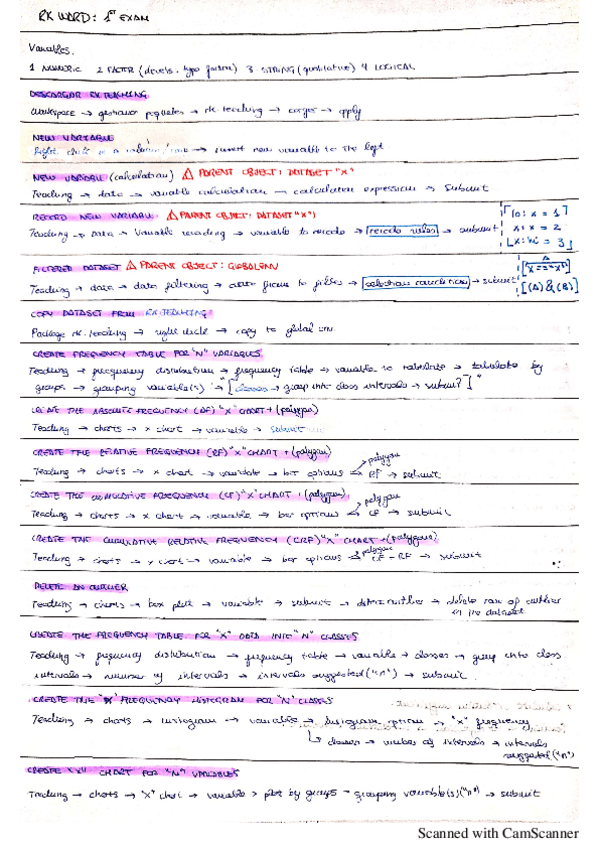 RK WARD: 1st EXAM
Variables.
1 NUMERIC 2 FACTOR (levels. type factor) 3 STRING (qualitative) 4 LOGICAL
DESCARGAR RK TEACHING
Workspace → gestionar paquetes → rk. teaching → cargar → apply
NEW VARIABLE
Right click → insert new variable to the left
NEW VARIABLE (calculation) ⚠ PARENT OBJECT: DATASET "X"
Teaching → data → variable calculation → calculation expression → submit
RECODE NEW VARIABLE ⚠ PARENT OBJECT: DATASET "X")
Teaching → data → variable recoding → variable to recode → recode rules → submit
FILTERED DATASET ⚠ PARENT OBJECT: GLOBALENV
Teaching → data → data filtering → data frame to filter → selection condition → submit [(A) & (B)]
COPY DATASET FROM RK.TEACHING
Package rk.teaching → right click → copy to global env
CREATE FREQUENCY TABLE FOR "N" VARIABLES
Teaching → frequency distribution → frequency table → variable to tabulate → tabulate by
groups → grouping variable(s) → [classes → group into class intervals → submit]
CREATE THE ABSOLUTE FREQUENCY (AF) "X" CHART + (polygon)
Teaching → charts → x chart → variable → submit
CREATE THE RELATIVE FREQUENCY (RF) "X" CHART + (polygon)
Teaching → charts → x chart → variable → bar options polygon RF → submit
CREATE THE CUMULATIVE FREQUENCY (CF) "X" CHART + (polygon)
Teaching → charts → x chart → variable → bar options polygon CF → submit
CREATE THE CUMULATIVE RELATIVE FREQUENCY (CRF) "X" CHART + (polygon)
Teaching → charts → x chart → variable → bar options polygon CF - RF → submit
DELETE AN OUTLIER
Teaching → charts → box plot → variable → submit → → delete row of outlier
in the dataset
CREATE THE FREQUENCY TABLE FOR "X" DATA INTO "N" CLASSES
Teaching → frequency distribution → frequency table → variable → classes → group into class
intervals → number of intervals → intervals suggested ("n") → submit.
CREATE THE "X" FREQUENCY HISTOGRAM FOR "N" CLASSES
Teaching → charts → histogram → variable → histogram options → "x" frequency
classes → number of intervals → intervals
suggested ("n")
CREATE "X" CHART FOR "N" VARIABLES
Teaching → charts → "X" chart → variable > plot by groups - grouping variable(s) ("n") → submit
Scanned with CamScanner